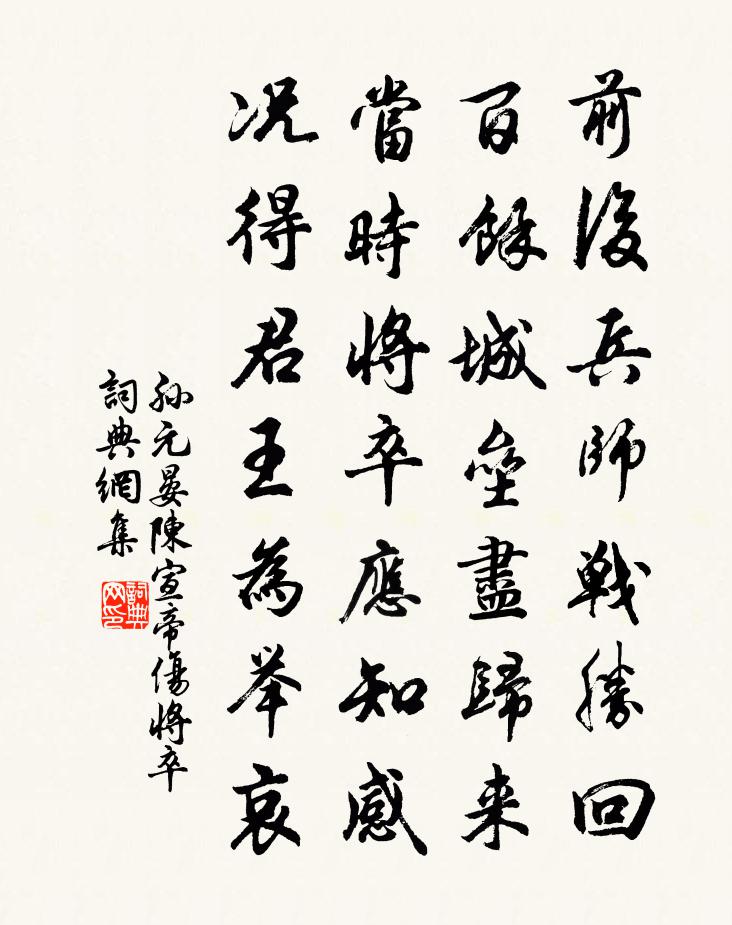 前後兵師戦勝回
百餘城壘盡歸来
當時將卒應知感
況得君王為举哀
孙元晏陳宣帝傷將卒
詞典網集
詞典
网印